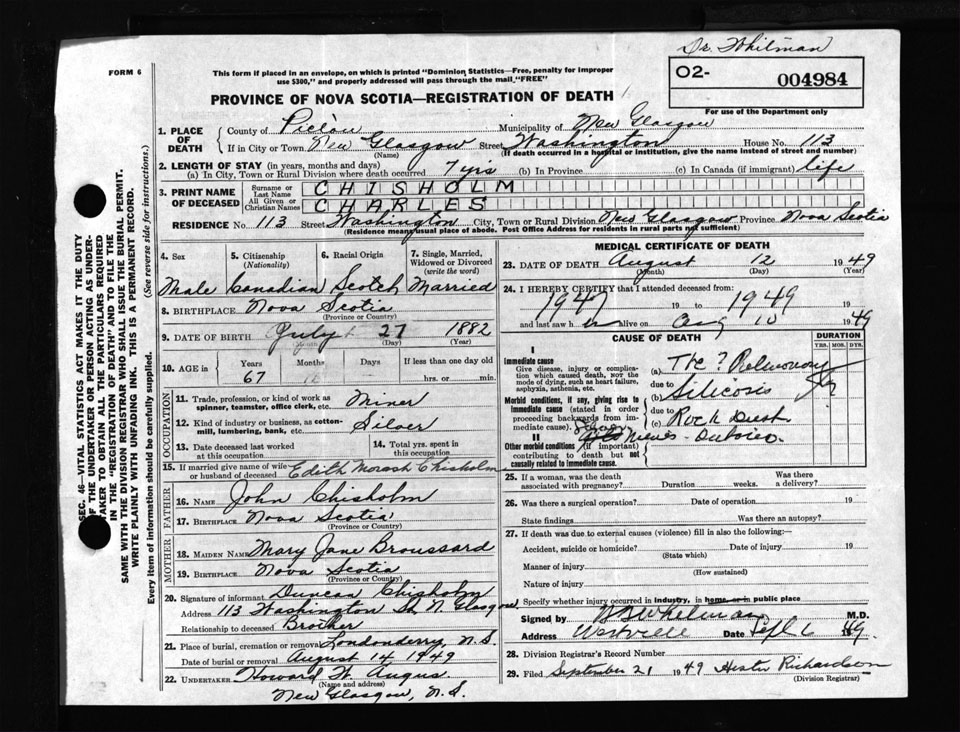 Dr. Whitman
FORM 6
This form if placed in an envelope, on which is printed "Dominion Statistics—Free, penalty for improper
use $300," and properly addressed will pass through the mail "FREE"
O2- 004984
For use of the Department only
PROVINCE OF NOVA SCOTIA—REGISTRATION OF DEATH
1. PLACE OF DEATH
County of Pictou Municipality of New Glasgow
If in City or Town New Glasgow Street Washington House No. 113
(Name) (If death occurred in a hospital or institution, give the name instead of street and number)
2. LENGTH OF STAY (in years, months and days)
(a) In City, Town or Rural Division where death occurred 7 yrs (b) In Province (c) In Canada (if immigrant) life
3. PRINT NAME OF DECEASED
Surname or Last Name CHISHOLM
All Given or Christian Names CHARLES
RESIDENCE No. 113 Street Washington City, Town or Rural Division New Glasgow Province Nova Scotia
(Residence means usual place of abode. Post Office Address for residents in rural parts not sufficient)
4. Sex
5. Citizenship (Nationality)
6. Racial Origin
7. Single, Married, Widowed or Divorced (write the word)
Male Canadian Scotch Married
8. BIRTHPLACE Nova Scotia
(Province or Country)
9. DATE OF BIRTH July 27 1882
(Month) (Day) (Year)
10. AGE in
Years Months Days If less than one day old
67 hrs. or min.
OCCUPATION
11. Trade, profession, or kind of work as
spinner, teamster, office clerk, etc. Miner
12. Kind of industry or business, as cotton-
mill, lumbering, bank, etc. Silver
13. Date deceased last worked
at this occupation
14. Total yrs. spent in
this occupation
15. If married give name of wife
or husband of deceased Edith Chisholm
FATHER
16. NAME John Chisholm
17. BIRTHPLACE Nova Scotia
(Province or Country)
MOTHER
18. MAIDEN NAME Mary Jane Broussard
19. BIRTHPLACE Nova Scotia
(Province or Country)
20. Signature of informant Duncan Chisholm
Address 113 Washington St. N. Glasgow
Relationship to deceased Brother
21. Place of burial, cremation or removal Londonderry, N.S.
Date of burial or removal August 14 1949
22. UNDERTAKER Howard W. Angus
(Name and address)
New Glasgow, N.S.
MEDICAL CERTIFICATE OF DEATH
23. DATE OF DEATH August 12 1949
(Month) (Day) (Year)
24. I HEREBY CERTIFY that I attended deceased from:
1947 19 to 1949 19
and last saw h alive on Aug 10 1949
CAUSE OF DEATH
DURATION
YRS. MOS. DYS.
I
Immediate cause
Give disease, injury or complica-
tion which caused death, not the
mode of dying, such as heart failure,
asphyxia, asthenia, etc.
(a) ? Pulmonary
due to
Morbid conditions, if any, giving rise to
immediate cause (stated in order
proceeding backwards from im-
mediate cause).
(b) Silicosis
due to
(c) Rock Dust
II
Other morbid conditions (if important)
contributing to death but not
causally related to immediate cause.
25. If a woman, was the death
associated with pregnancy? Duration weeks. Was there
a delivery?
26. Was there a surgical operation? Date of operation 19
State findings Was there an autopsy?
27. If death was due to external causes (violence) fill in also the following:—
Accident, suicide or homicide? Date of injury 19
(State which)
Manner of injury
(How sustained)
Nature of injury
Specify whether injury occurred in industry, in home, or in public place
Signed by M.D.
Address Westville Date Sept 6 1949.
28. Division Registrar's Record Number
29. Filed September 21 1949 Hester Richardson
(Division Registrar)
SEC. 46—VITAL STATISTICS ACT MAKES IT THE DUTY
OF THE UNDERTAKER OR PERSON ACTING AS UNDER-
TAKER TO OBTAIN ALL THE PARTICULARS REQUIRED
IN THE "REGISTRATION OF DEATH" AND TO FILE THE
SAME WITH THE DIVISION REGISTRAR WHO SHALL ISSUE THE BURIAL PERMIT.
WRITE PLAINLY WITH UNFADING INK. THIS IS A PERMANENT RECORD.
Every item of information should be carefully supplied. (See reverse side for instructions.)